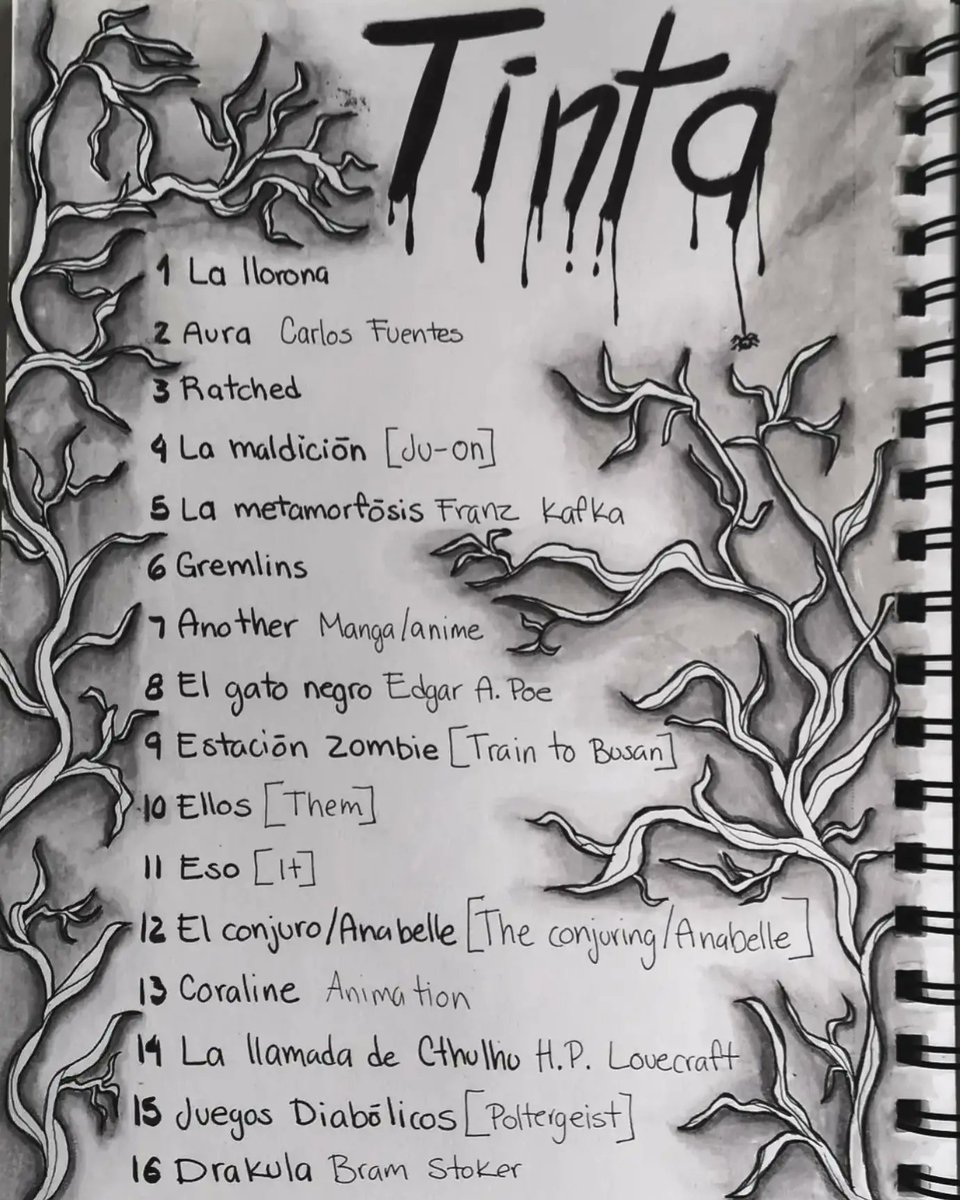 Tinta
1 La llorona
2 Aura Carlos Fuentes
3 Ratched
4 La maldición [Ju-on]
5 La metamorfósis Franz Kafka
6 Gremlins
7 Another Manga/anime
8 El gato negro Edgar A. Poe
9 Estación Zombie [Train to Busan]
10 Ellos [Them]
11 Eso [It]
12 El conjuro/Anabelle [The conjuring/Anabelle]
13 Coraline Animation
14 La llamada de Cthulho H.P. Lovecraft
15 Juegos Diabólicos [Poltergeist]
16 Drakula Bram Stoker